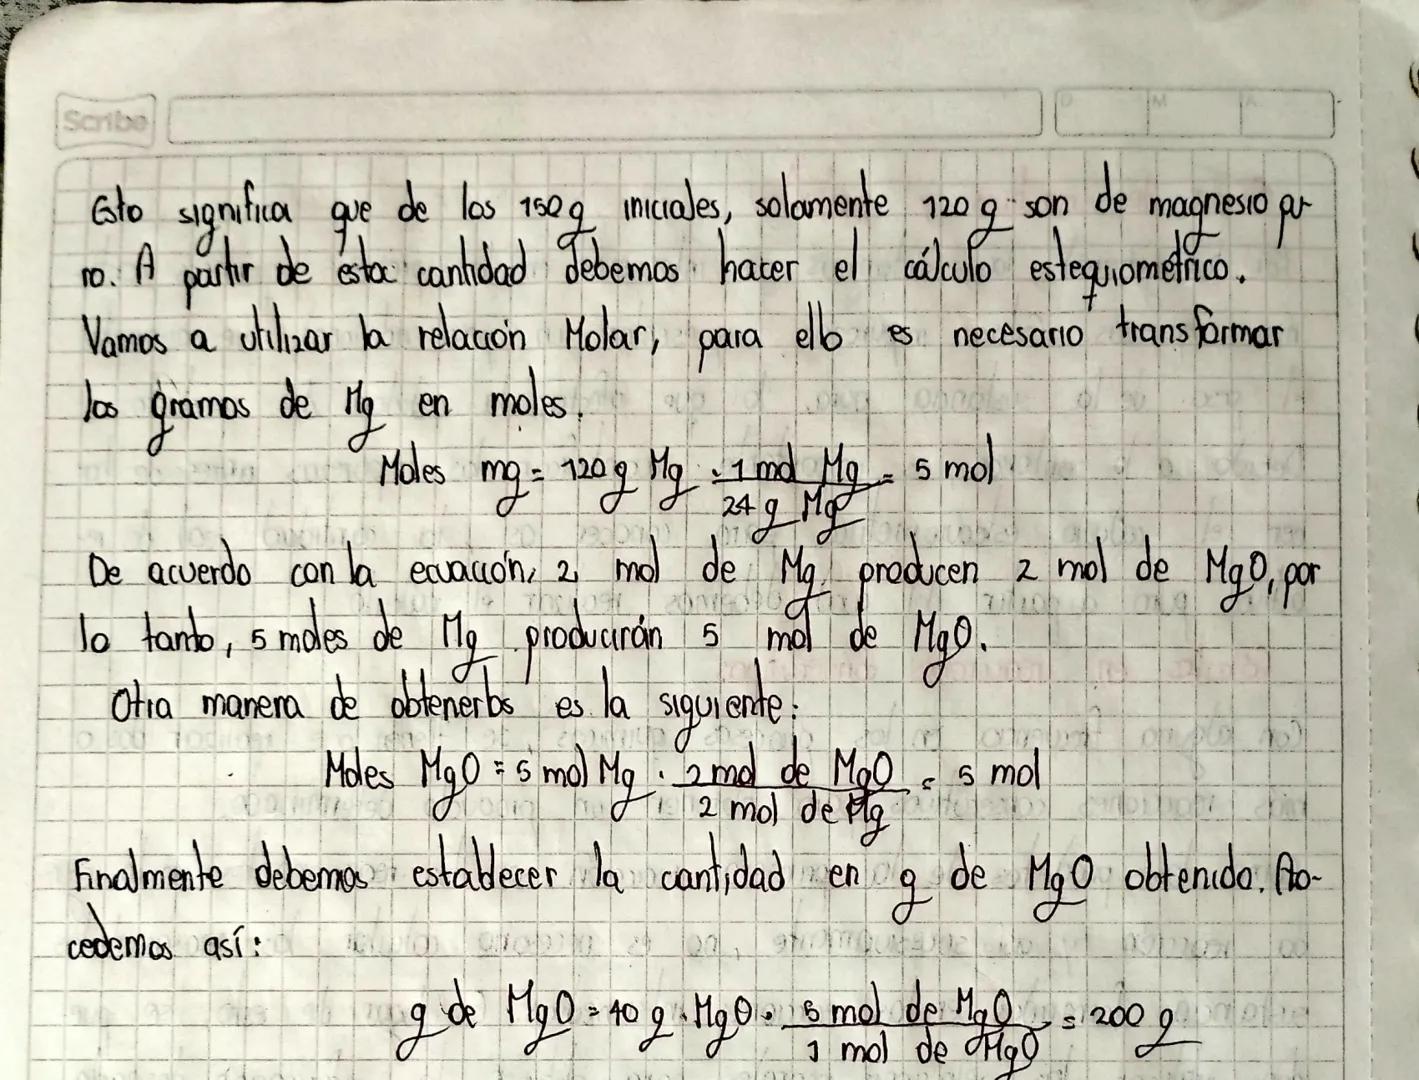 Scribe
D M A
Esto significa que de los 150 g iniciales, solamente 120 g son de magnesio pu-
ro. A partir de esta cantidad debemos hacer el cálculo estequiométrico.
Vamos a utilizar la relación Molar, para ello es necesario transformar
los gramos de Mg en moles.
Moles mg = 120 g Mg · 1 mol Mg = 5 mol
24 g Mg
De acuerdo con la ecuación, 2 mol de Mg producen 2 mol de MgO, por
lo tanto, 5 moles de Mg producirán 5 mol de MgO.
Otra manera de obtenerlos es la siguiente:
Moles MgO = 5 mol Mg · 2 mol de MgO = 5 mol
2 mol de Mg
Finalmente debemos establecer la cantidad en g de MgO obtenido. Pro-
cedemos así:
g de MgO = 40 g · MgO · 5 mol de MgO = 200 g
1 mol de MgO